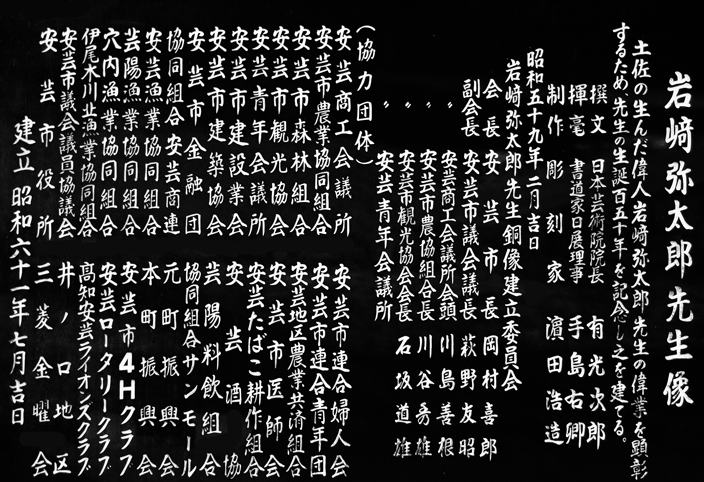 岩﨑弥太郎先生像
土佐の生んだ偉人岩﨑弥太郎先生の偉業を顕彰
するため、先生の生誕百五十年を記念し之を建てる。
撰文 日本芸術院院長 有光次郎
揮毫 書道家日展理事 手島右卿
制作 彫刻家 濱田浩造
昭和五十九年二月吉日
岩﨑弥太郎先生銅像建立委員会
会長 安芸市長 岡村喜郎
副会長 安芸市議会議長 萩野友昭
〃 安芸商工会議所会頭 川島善根
〃 安芸市農協組合長 川谷勇雄
〃 安芸市観光協会会長 石坂道雄
安芸青年会議所
(協力団体)
安芸商工会議所
安芸市農業協同組合
安芸市森林組合
安芸市観光協会
安芸青年会議所
安芸市建設業会
安芸市建築協会
安芸市金融団
協同組合安芸商連
安芸漁業協同組合
芸陽漁業協同組合
穴内漁業協同組合
伊尾木川北漁業協同組合
安芸市議会議員協議会
安芸市役所
安芸市連合婦人会
安芸市連合青年団
安芸地区農業共済組合
安芸市医師会
安芸たばこ耕作組合
安芸酒協
芸陽料飲組合
協同組合サンモール
元町振興会
本町振興会
安芸市4Hクラブ
安芸ロータリークラブ
高知安芸ライオンズクラブ
井ノ口地区
三菱金曜会
建立 昭和六十一年七月吉日